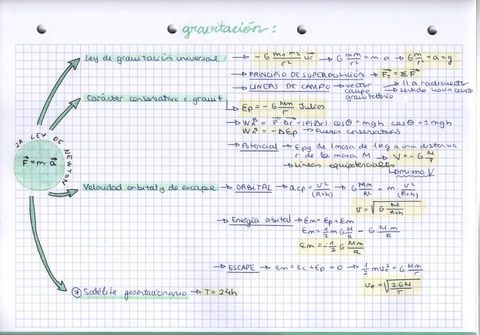 gravitación:
Ley de gravitación universal → -G m₁·m₂/r² ur → G m·m/r² = m·a → G m/r² = a = g
→ PRINCIPIO DE SUPERPOSICIÓN → FT = ΣF
→ LINEAS DE CAMPO → vector campo gravitatorio
Carácter conservativo c. gravit
→ Ep = -G Mm/r Julios
cosθ = mgh cosθ
→ W = -ΔEp → fuerzas conservativas
→ Potencial → Epg de 1 masa de 1kg a una distancia
r de la masa M → V = -G M/r
→ Líneas equipotenciales
→ mismo V
2ª LEY DE NEWTON
F = m·a
Velocidad orbital y de escape → ORBITAL → acp = v²/(R+h) → G Mm/ = m v²/(R+h)
v = √G M/(R+h)
→ Energía orbital → Em = Ep + Em
Em = 1/2 m G M/R - G M·m/R
Em = -1/2 G Mm/R
→ ESCAPE → Em = Ec + Ep = 0 → 1/2 mve² = G Mm/r
= √2GM/r
* Satélite geoestacionario → T = 24h